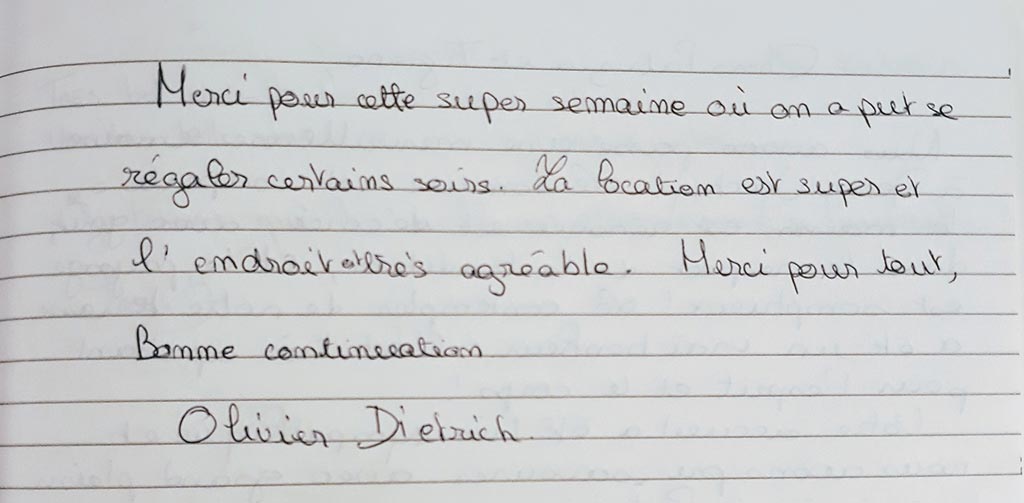 Merci pour cette super semaine où on a put se
régaler certains soirs. La location est super et
l'endroit très agréable. Merci pour tout,
Bonne continuation
Olivier Dietrich.